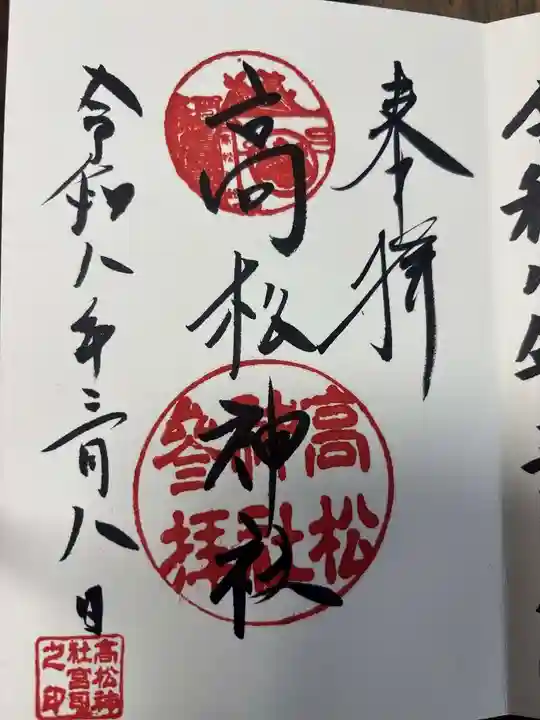 奉拝
高松神社
高松
神社
参拝
令和八年三月八日
高松神
社宮司
之印